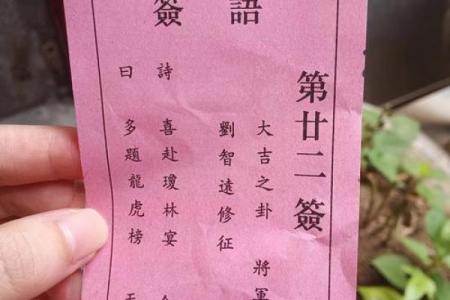 簽語
第廿二簽
大吉之卦 將軍
劉智遠修征
詩 喜赴瓊林宴
曰 多題龍虎榜